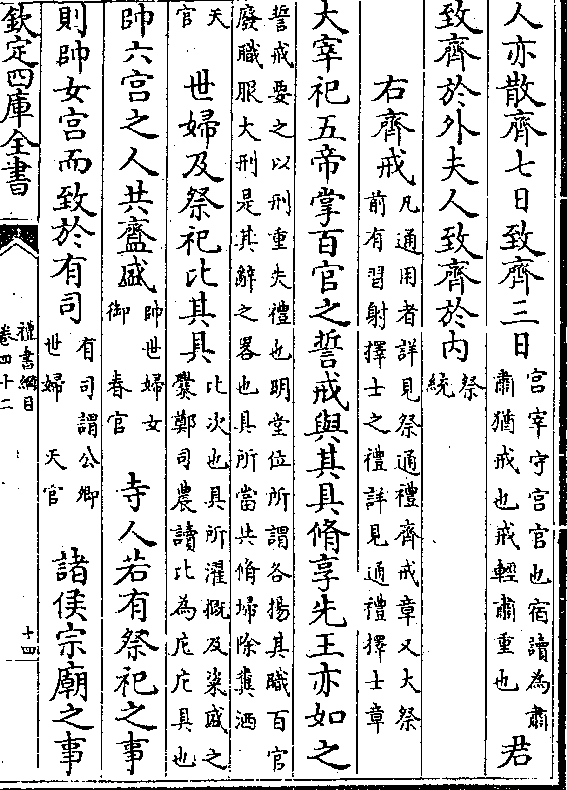 人亦散齊七日致齊三日宫宰守宫官也宿讀為肅肅猶戒也戒輕肅重也君
致齊於外夫人致齊於内祭統
右齊戒凡通用者詳見祭通禮齊戒章又大祭前有習射擇士之禮詳見通禮擇士章
大宰祀五帝掌百官之誓戒與其具脩享先王亦如之
誓戒要之以刑重失禮也明堂位所謂各揚其職百官廢職服大刑是其辭之畧也具所當共脩埽除糞洒
天官世婦及祭祀比其具比次也具所濯摡及粢盛之爨鄭司農讀比為庀庀具也
帥六宫之人共齍盛帥世婦女御春官寺人若有祭祀之事
則帥女宫而致於有司有司謂公卿世婦天官諸侯宗廟之事
欽定四庫全書
禮書綱目
卷四十二
十四